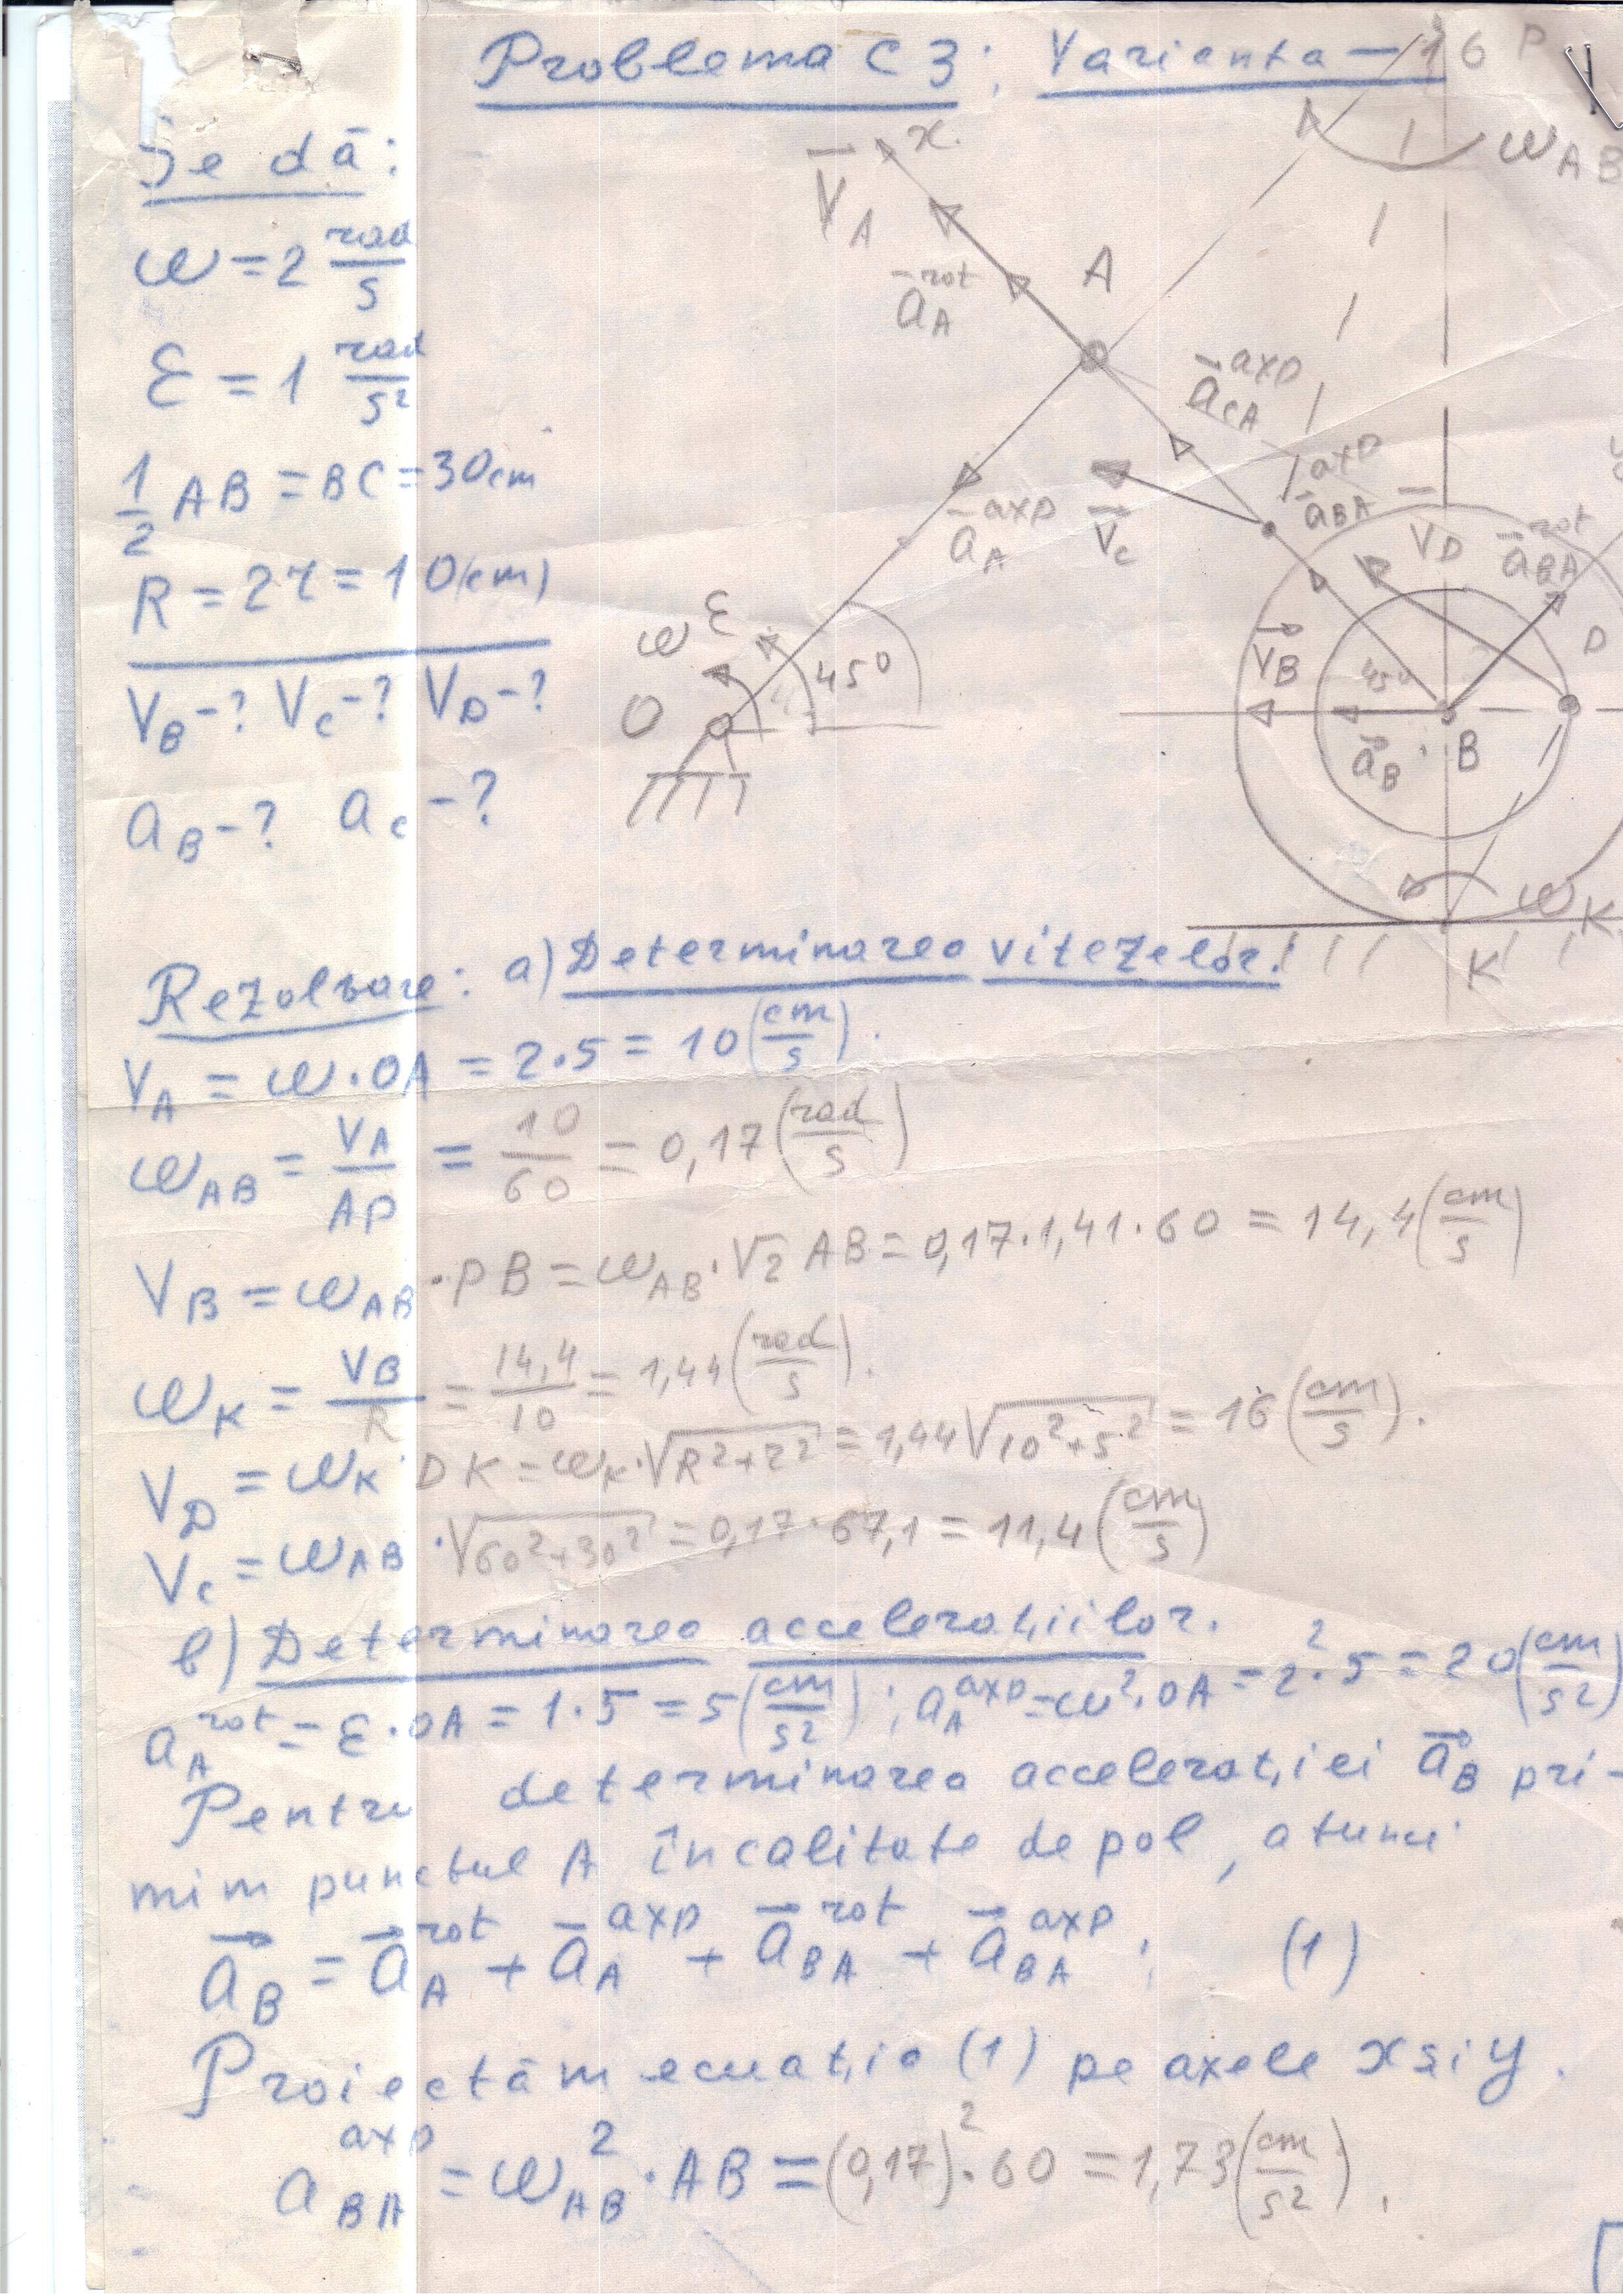 Problema C3; Varianta-16
P
Se dă:
ω = 2 rad/s
ε = 1 rad/s²
1/2 AB = BC = 30cm
R = 2r = 10(cm)
V_B-? V_C-? V_D-?
a_B-? a_C-?
x
V̄_A
ā_A^rot
A
ω_AB
ā_CA^axp
ā_BA^axp
ā_A^axp
V̄_C
V̄_D
ā_BA^rot
D
ω ε
45°
O
V⃗_B
45°
a⃗_B
B
ω_K
K
Rezolvare: a) Determinarea vitezelor.
V_A = ω·OA = 2·5 = 10 (cm/s).
ω_AB = V_A/AP = 10/60 = 0,17 (rad/s)
V_B = ω_AB·PB = ω_AB·√2 AB = 0,17·1,41·60 = 14,4 (cm/s)
ω_K = V_B/R = 14,4/10 = 1,44 (rad/s).
V_D = ω_K·DK = ω_K·√(R²+r²) = 1,44√(10²+5²) = 16 (cm/s).
V_C = ω_AB·√(60²+30²) = 0,17·67,1 = 11,4 (cm/s)
b) Determinarea accelerațiilor.
a_A^rot = ε·OA = 1·5 = 5 (cm/s²); a_A^axp = ω²·OA = 2²·5 = 20 (cm/s²)
Pentru determinarea accelerației a⃗_B pri-
mim punctul A în calitate de pol, atunci
a⃗_B = a⃗_A^rot + ā_A^axp + a⃗_BA^rot + a⃗_BA^axp; (1)
Proiectăm ecuația (1) pe axele x și y.
a_BA^axp = ω_AB²·AB = (0,17)²·60 = 1,73 (cm/s²).